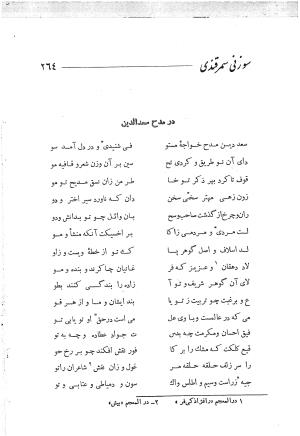 سوزنی سمرقندی
۲۶۴
در مدح سعدالدین
سعد دیـن مدح خواجهٔ مستو فی شنیدی و در دل آمـد سو
دای آن تو طریق و کردی تح سین بر آن وزن شعر و قافیه مو
قوف تا کرد بیر ذکر تو خـا طر من زان نسق مدیـح تو مو
زون زهی مهتر سخی سخن دان که ناورد سیر اختر و دو
ران وچرخ از گذشت صاحب وسح بان وائـل چو تو بدانش ودو
لت مردی و مردمـی زاکا بر اخسیکت آنکه منشأ و مو
لـد اسلاف و اصل گوهر پا که تـو از خطهٔ ویست و زاو
لاد دهقان ۱ و عزیـز که فر غانیان چاکرند و بنده و مو
لای آن گوهر شریف و تو آ زاده را بندگـی کنند بطو
ع و برغبت چو تربیت ز تو یا بند ایشان و ما و از هـر قو
می که در عالمست وبا وی عل م است درحق او تو یابی تو
فیق احسان ومکرمت چه بدس ت جـواد عطاده و چه به تو
قیع کلکت که مشک بر کا فور نقش افکند چو بر رخ حو
را سر زلف حلقه حلقه مر فوع زان نقش شاعران را تو
جیه زراست وسیم و اطلس واک سون و دمیاطی و عتابی و تو
۱ درالمعجم «
۲ـ در المعجم «بیش»